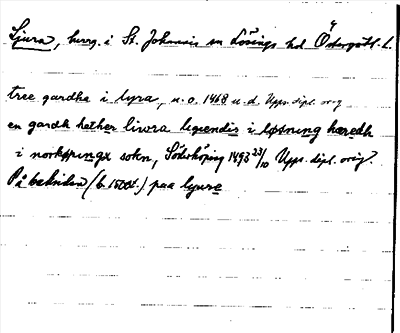 Ljura, herrg. i St. Johannis sn Lösings hd Östergötl. l.
tree gardha i lyra, u. o. 1468 u. d. Upps. dipl. orig
en gardh hether liwra liggendis i løsning hæredh
i norkøpungx sokn, Söderköping 1493 23/10 Upps. dipl. orig.
På baksidan (b. 1500t.) paa lywre